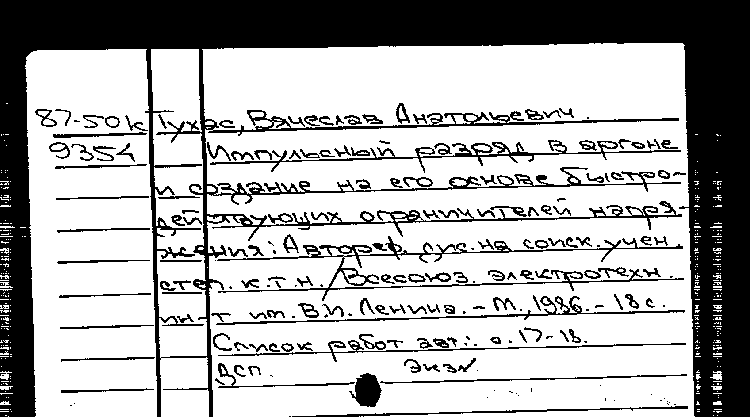 87-50к Тухас, Вячеслав Анатольевич.
9354 Импульсный разряд в аргоне
и создание на его основе быстро-
действующих ограничителей напря-
жения: Автореф. дис. на соиск. учен.
степ. к.т.н. / Всесоюз. электротехн.
ин-т им. В.И. Ленина. - М., 1986. - 18 с.
Список работ авт.: с. 17-18.
Дсп. Экз№